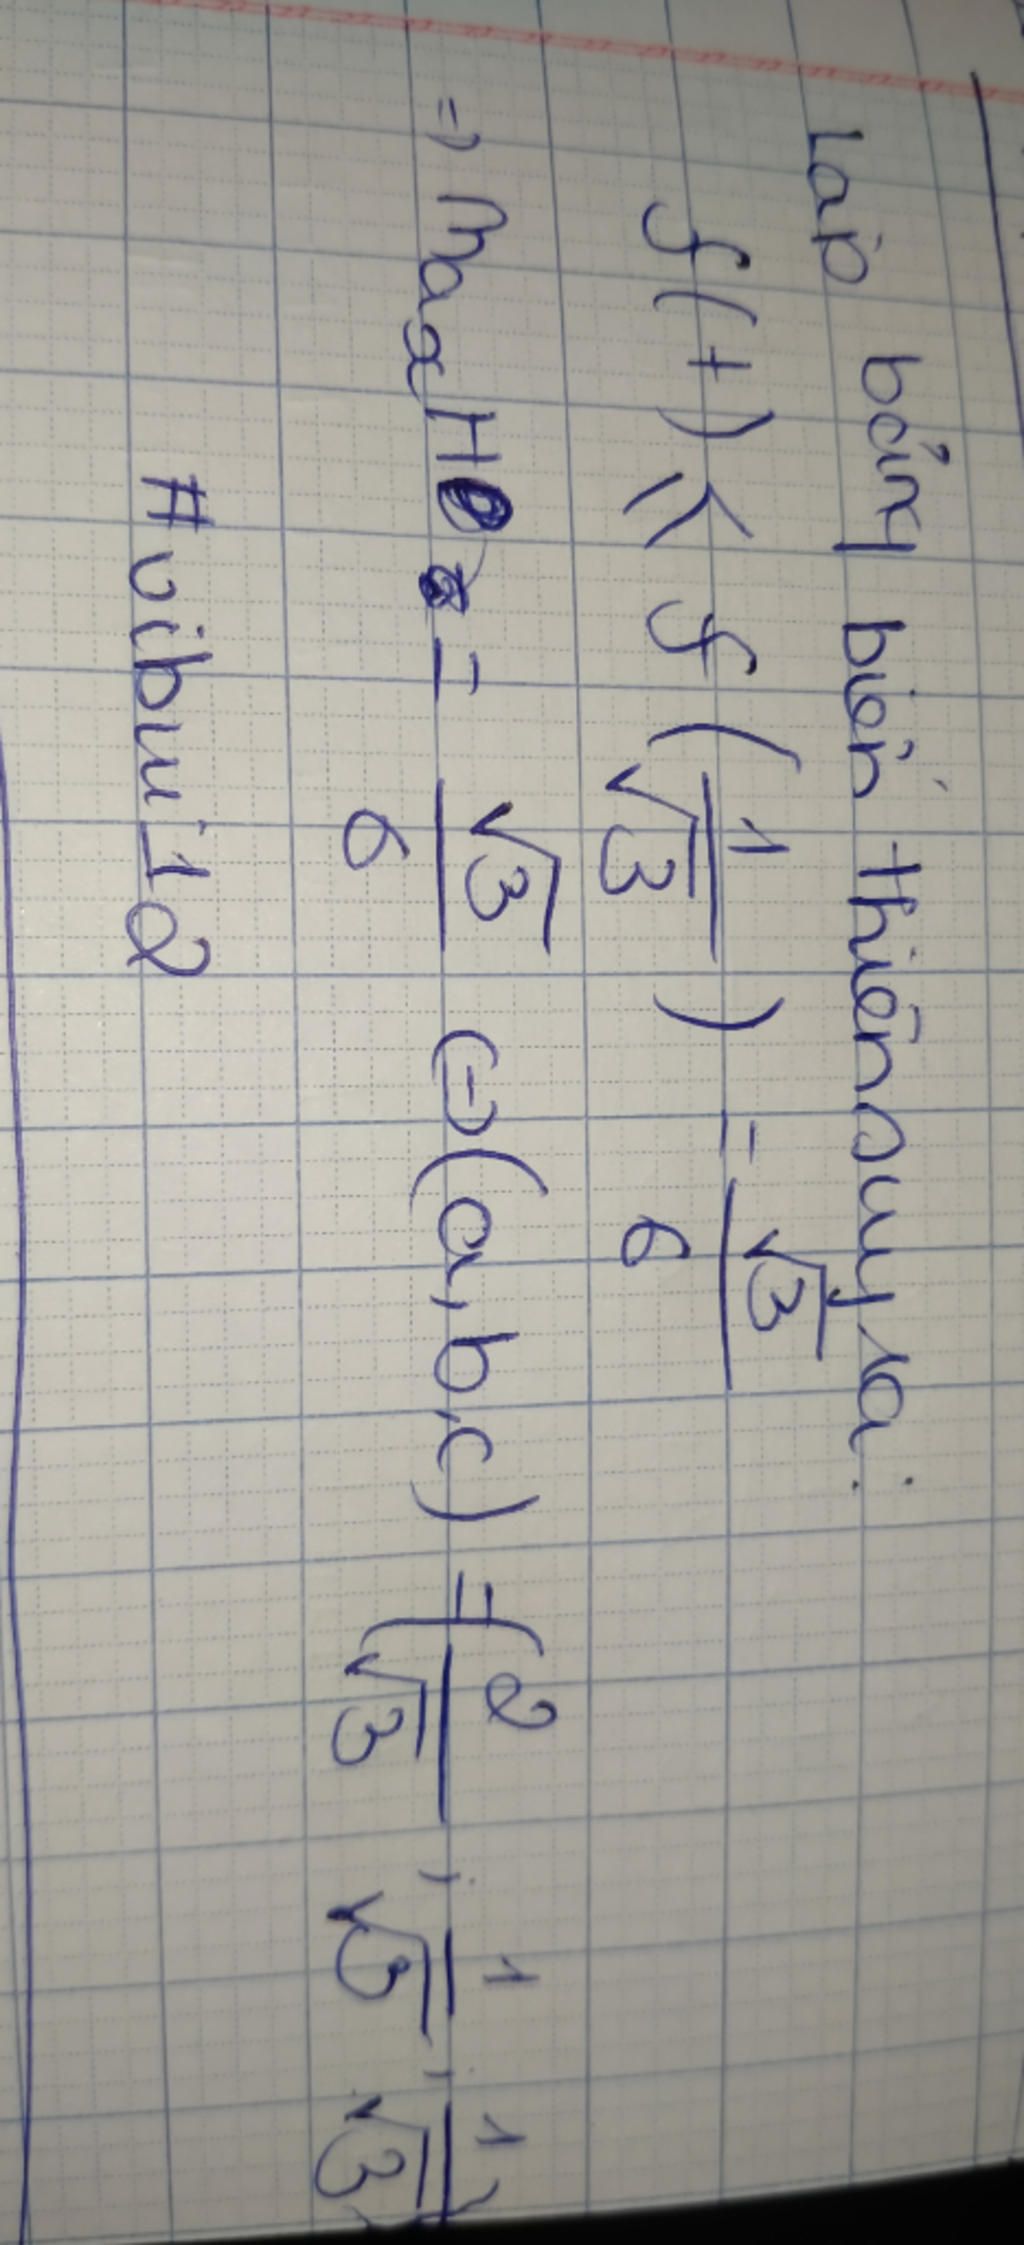 Lập bảng biến thiên suy ra:
f(t) ≤ f(1/√3) = √3/6
=> Max H = √3/6 (-) (a,b,c) = (2/√3; 1/√3; 1/√3)
#vibui12